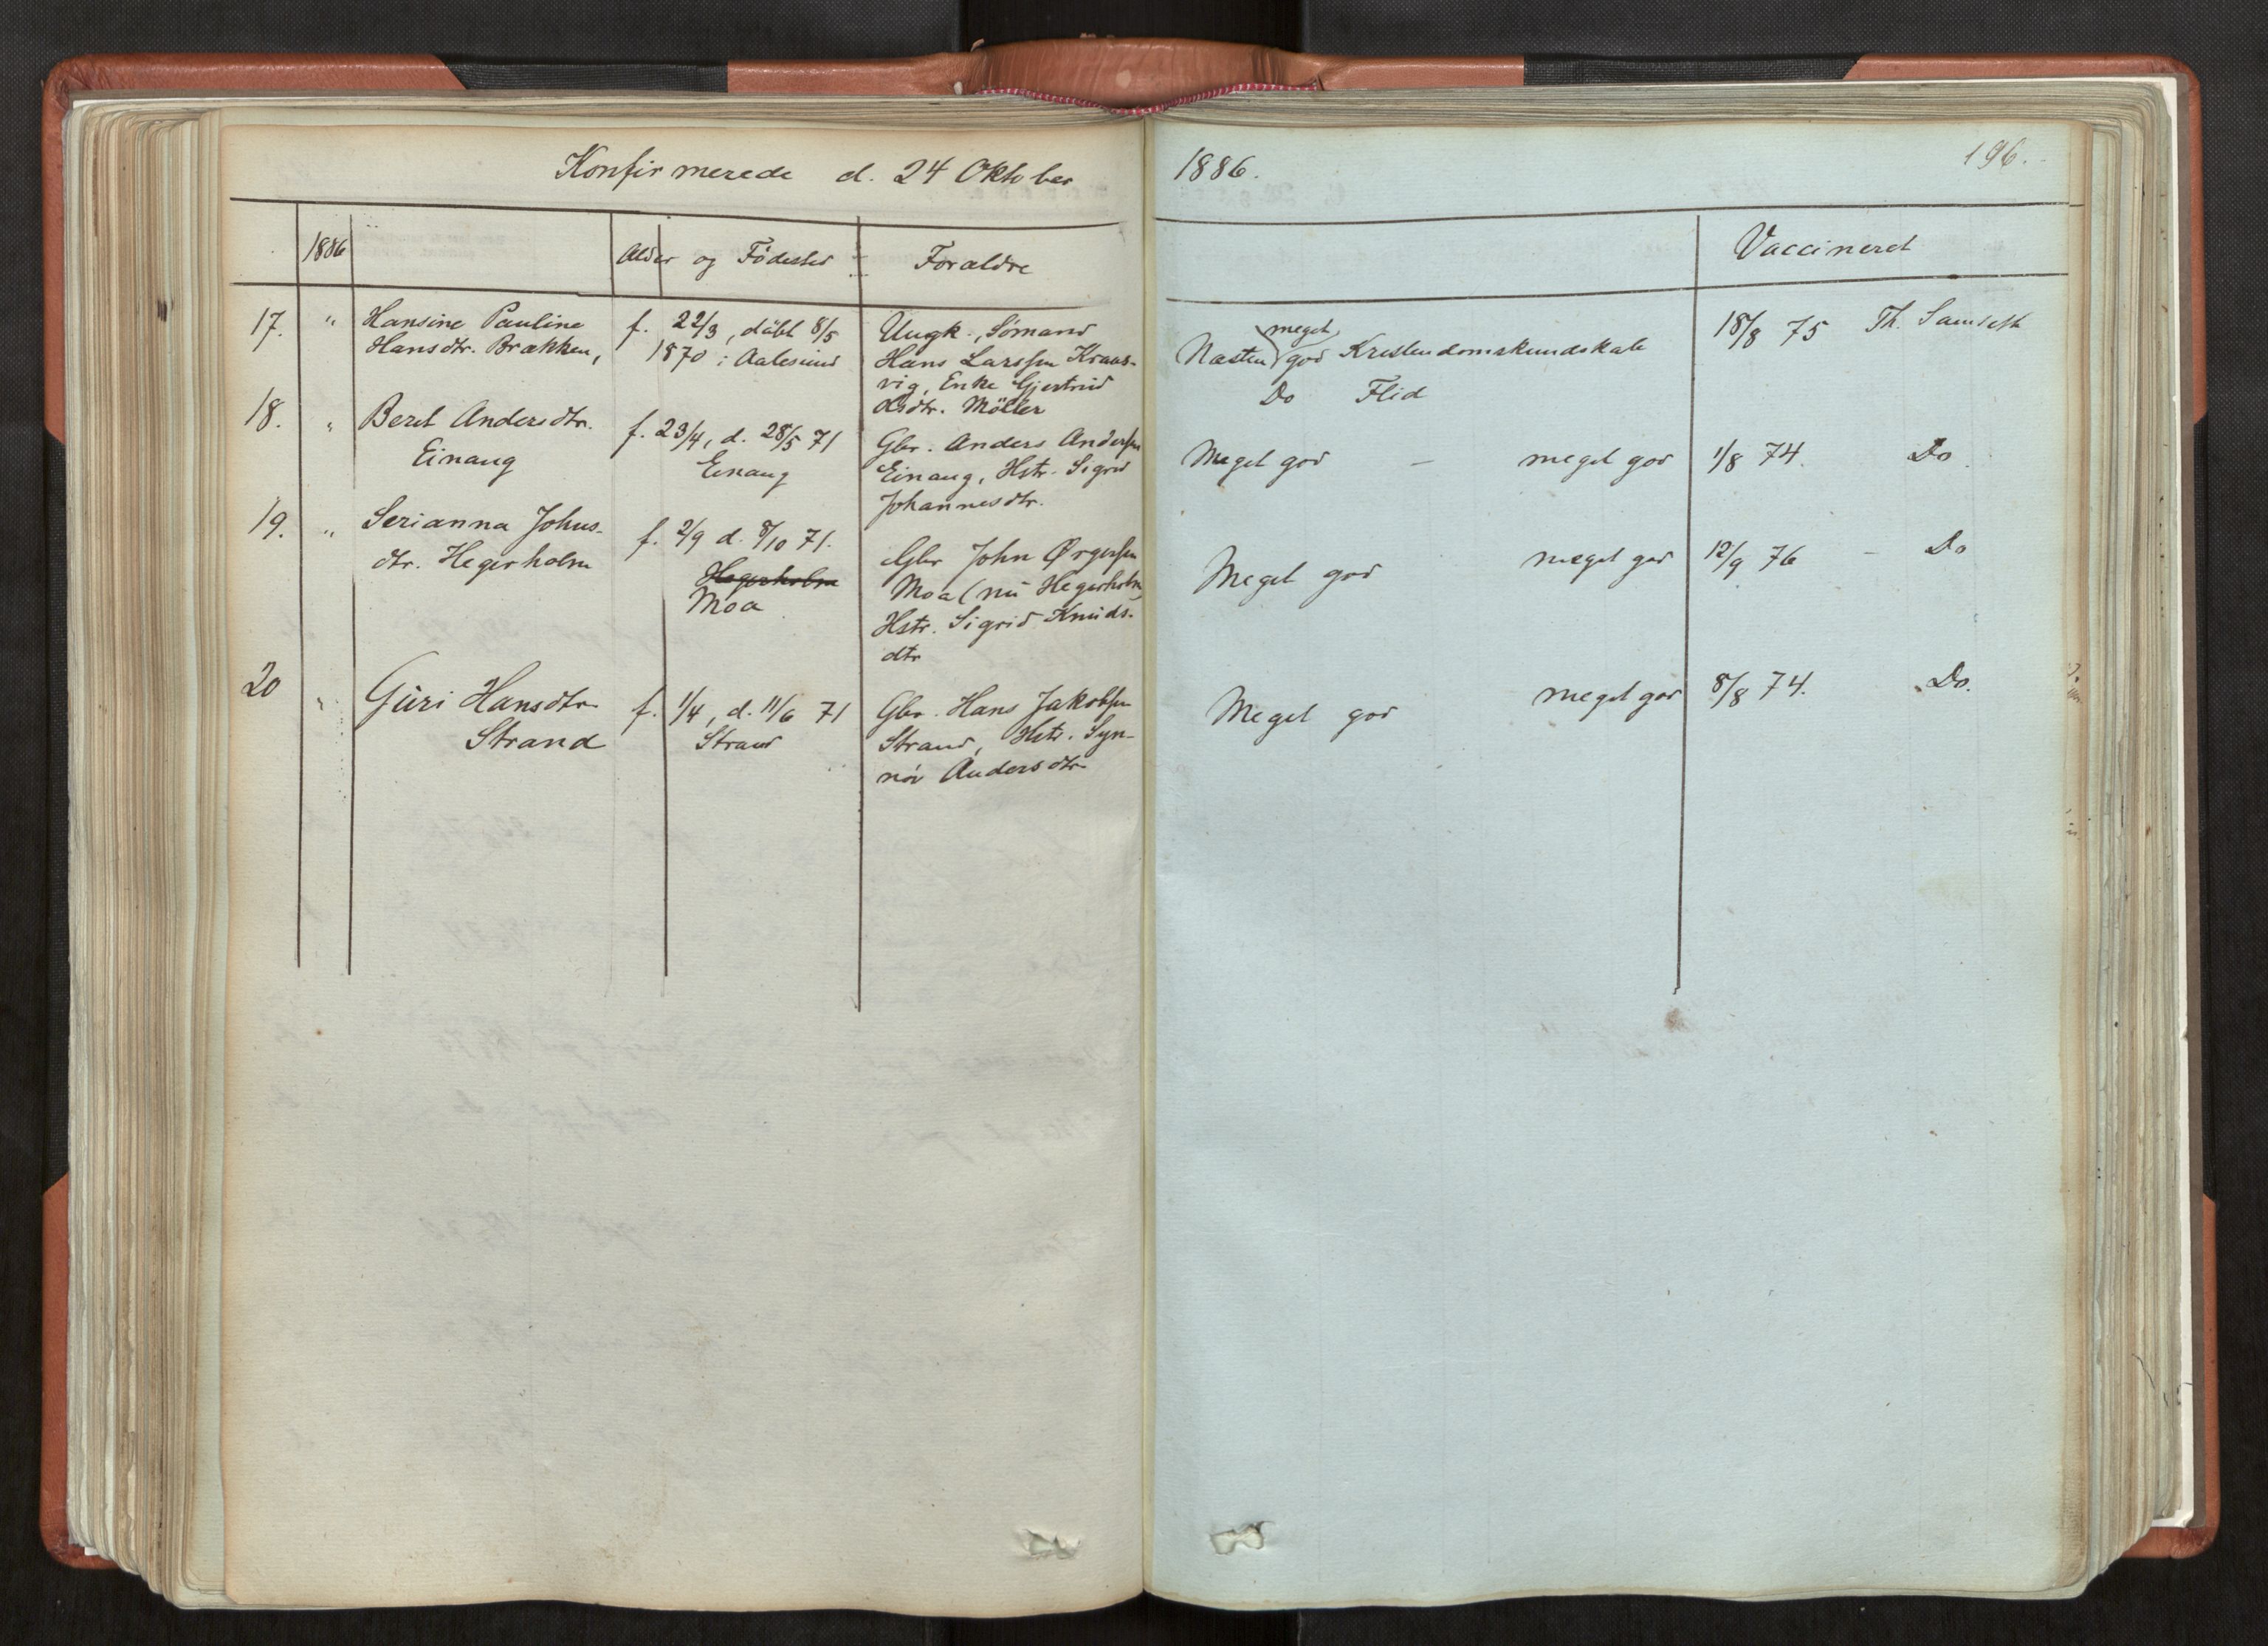 Konfirmerede d. 24 Oktober
1886
Alder og Födested
Forældre
17. " Hansine Pauline
Hansdtr. Brækken,
f. 22/3, döbt 8/5
1870 i Aalesund
Ungk., Sømand
Hans Larssen Kraas-
vig, Enke Gjertrud
Möller
18. " Beret Andersdtr.
Einang
f. 23/4, d. 28/5 71
Einang
Gbr. Anders Anderssen
Einang, Hstr. Sigrid
Johannesdtr.
19. " Serianna Johns-
dtr. Hegerholm
f. 2/9 d. 8/10 71.
Hegerholm
Moa
Gbr John Ørgerssen
Moa (nu Hegerholm)
Hstr. Sigrid Knuds-
dtr
20 " Guri Hansdtr.
Strand
f. 1/4, d. 11/6 71
Strand
Gbr. Hans Jakobsen
Strand, Hstr. Syn-
növ Andersdtr
1886.
196.
Vaccineret
meget
Næsten god Kristendomskundskab
Do Flid
18/8 75 Th. Samseth
Meget god - meget god 1/8 74. Do
Meget god meget god 12/9 76 - Do
Meget god meget god 8/8 74. Do.